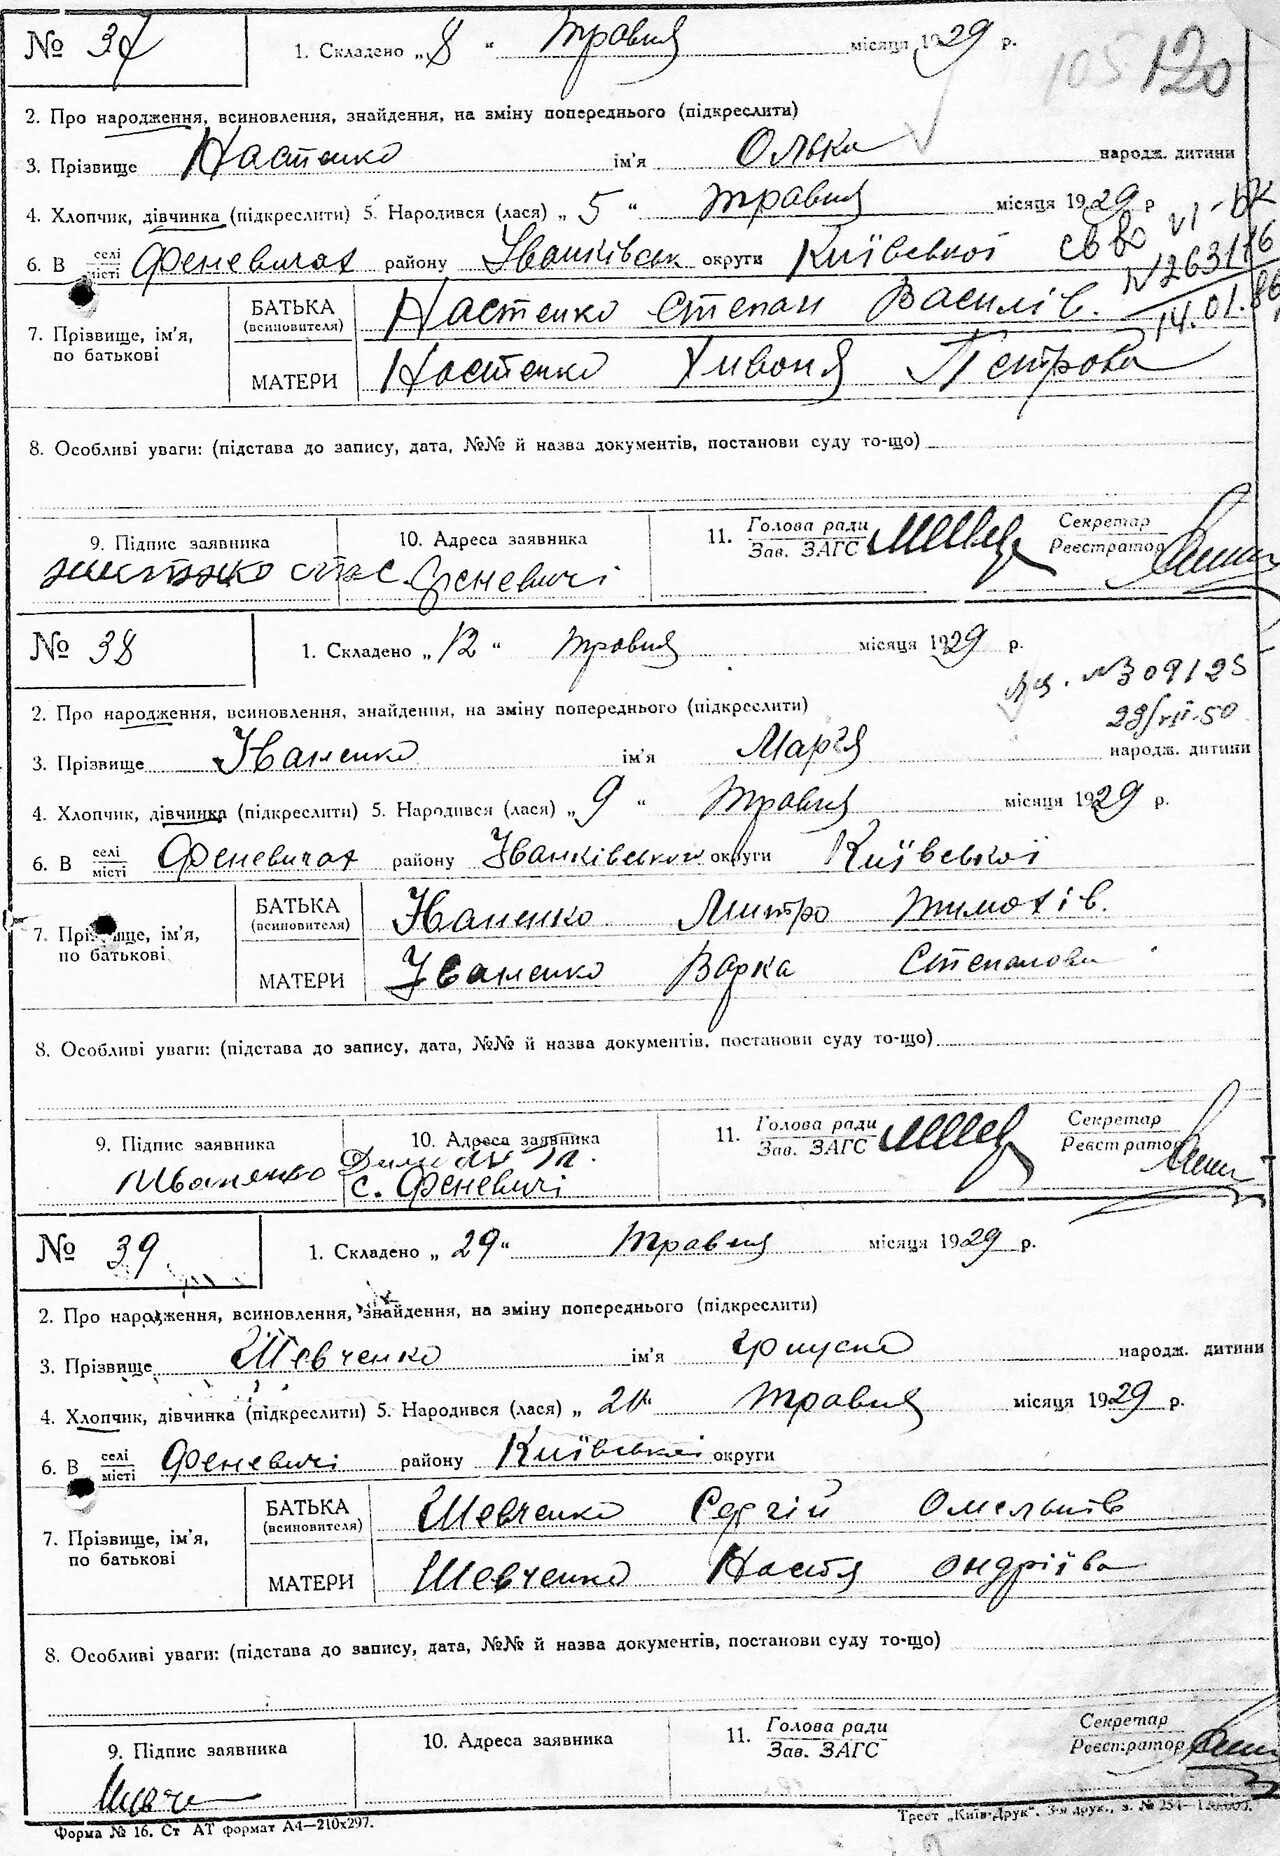 № 37 1. Складено „ 8 “ травня місяця 1929 р.
105 120
2. Про народження, всиновлення, знайдення, на зміну попереднього (підкреслити)
3. Прізвище Настенко ім'я Олька народж. дитини
4. Хлопчик, дівчинка (підкреслити) 5. Народився (лася) „ 5 “ травня місяця 1929 р
6. В селі місті Феневичах району Іванківськ округи Київської
св во VI-БК
N 263116
14.01.86
7. Прізвище, ім'я, по батькові
БАТЬКА (всиновителя) Настенко Степан Василів.
МАТЕРИ Настенко Хивоня Петрова
8. Особливі уваги: (підстава до запису, дата, №№ й назва документів, постанови суду то-що)
9. Підпис заявника 10. Адреса заявника 11. Голова ради Зав. ЗАГС Секретар Реєстратор
с. Феневичі
№ 38 1. Складено „ 12 “ травня місяця 1929 р.
№ 309125
2. Про народження, всиновлення, знайдення, на зміну попереднього (підкреслити)
23/VIII-50
3. Прізвище Іваненко ім'я Марія народж. дитини
4. Хлопчик, дівчинка (підкреслити) 5. Народився (лася) „ 9 “ травня місяця 1929 р.
6. В селі місті Феневичах району Іванківськог округи Київської
7. Прізвище, ім'я, по батькові
БАТЬКА (всиновителя) Іваненко Митро Тимохів.
МАТЕРИ Іваненко Варка Степанова
8. Особливі уваги: (підстава до запису, дата, №№ й назва документів, постанови суду то-що)
9. Підпис заявника 10. Адреса заявника 11. Голова ради Зав. ЗАГС Секретар Реєстратор
Иваненко
с. Феневичі
№ 39 1. Складено „ 29 “ травня місяця 1929 р.
2. Про народження, всиновлення, знайдення, на зміну попереднього (підкреслити)
3. Прізвище Шевченко ім'я народж. дитини
4. Хлопчик, дівчинка (підкреслити) 5. Народився (лася) „ травня місяця 1929 р.
6. В селі місті Феневичі району Київської округи
7. Прізвище, ім'я, по батькові
БАТЬКА (всиновителя) Шевченко Сергій Омельків
МАТЕРИ Шевченко Настя Ондріїва
8. Особливі уваги: (підстава до запису, дата, №№ й назва документів, постанови суду то-що)
9. Підпис заявника 10. Адреса заявника 11. Голова ради Зав. ЗАГС Секретар Реєстратор
Форма № 16. Ст АТ формат А4—210х297.
Трест „Київ-Друк“. 3-я друк., з. № 254—